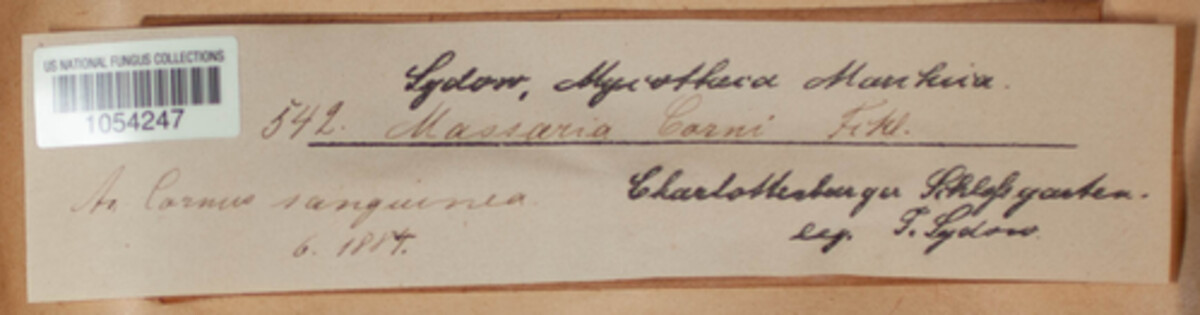 US NATIONAL FUNGUS COLLECTIONS
1054247
Sydow, Mycotheca Marchica.
542. Massaria Corni Fckl.
An Cornus sanguinea
6. 1884.
Charlottenburger Schloßgarten.
leg. P. Sydow.